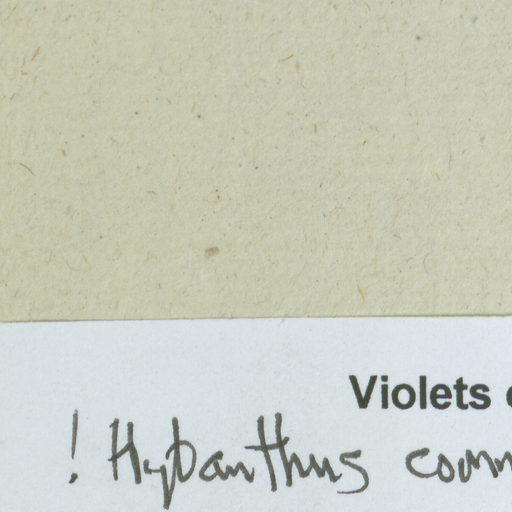 Violets
! Hybanthus